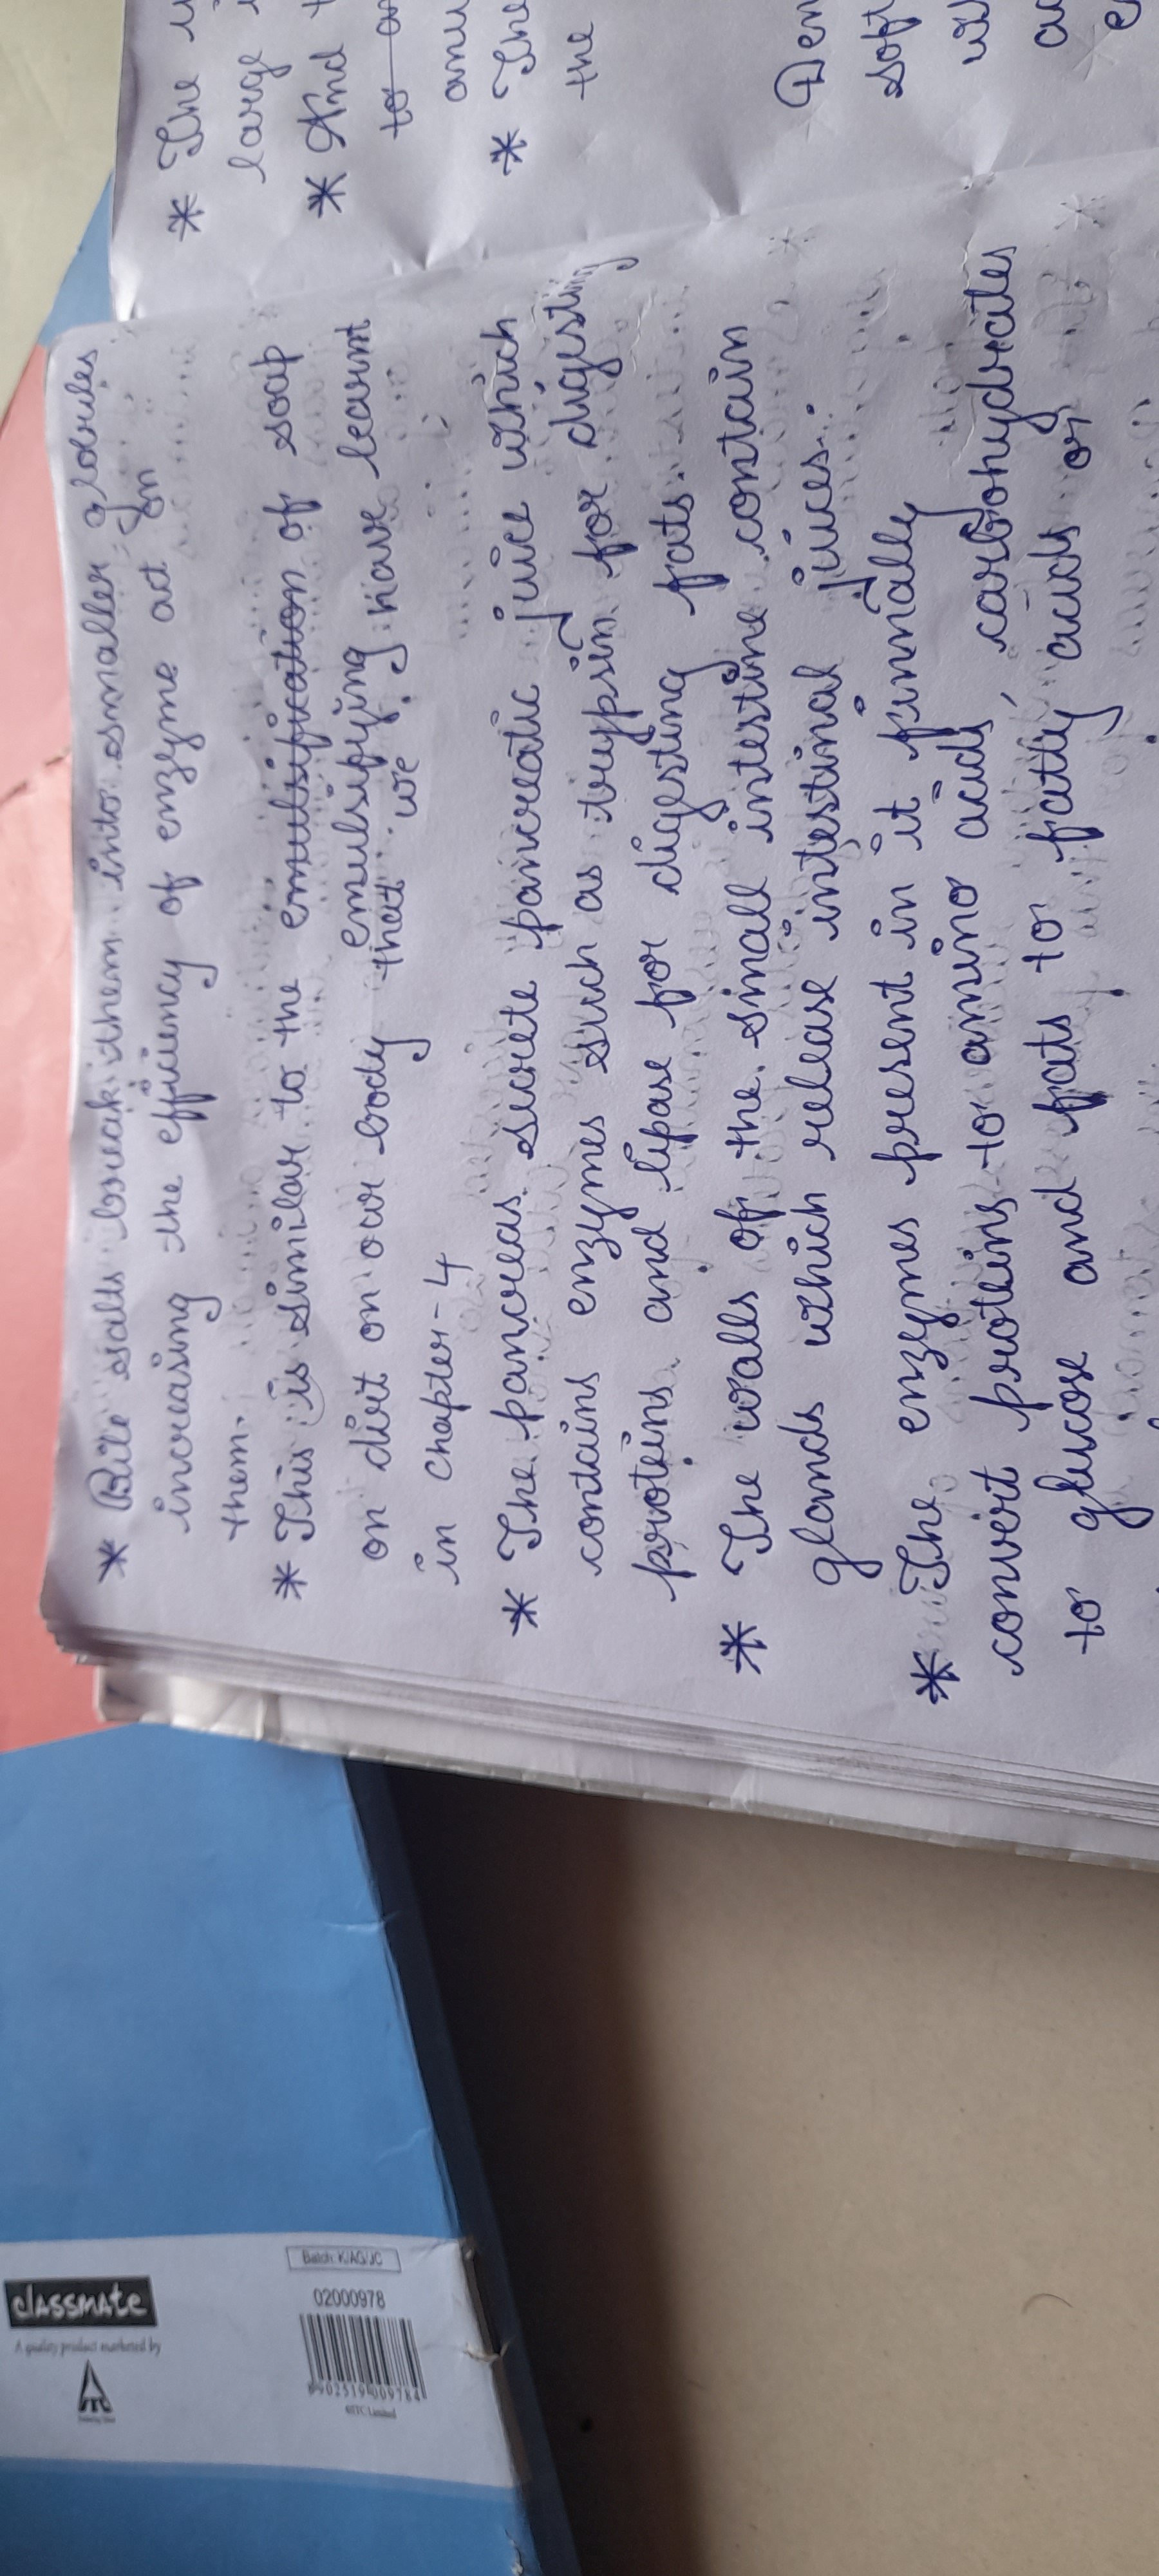 * Bile salts break them into smaller globules
increasing the efficiency of enzyme act In
them.
* This is similar to the emulsification of soap
emulsifying
on dirt on our body that we have learnt
in chapter-4
* The pancreas secrete pancreatic juice which
contains enzymes such as trypsin for digesting
proteins and lipase for digesting fats.
* The walls of the small intestine contain
glands which release intestinal juices.
* The enzymes present in it finnally
convert proteins to amino acids, carbohydrates
to glucose and fats to fatty acids or
* The
large
* And
to
* The
the
Den
soft
classmate
A quality product marketed by
ITC
Batch: K/AG/JC
02000978
8902519009784
©ITC Limited